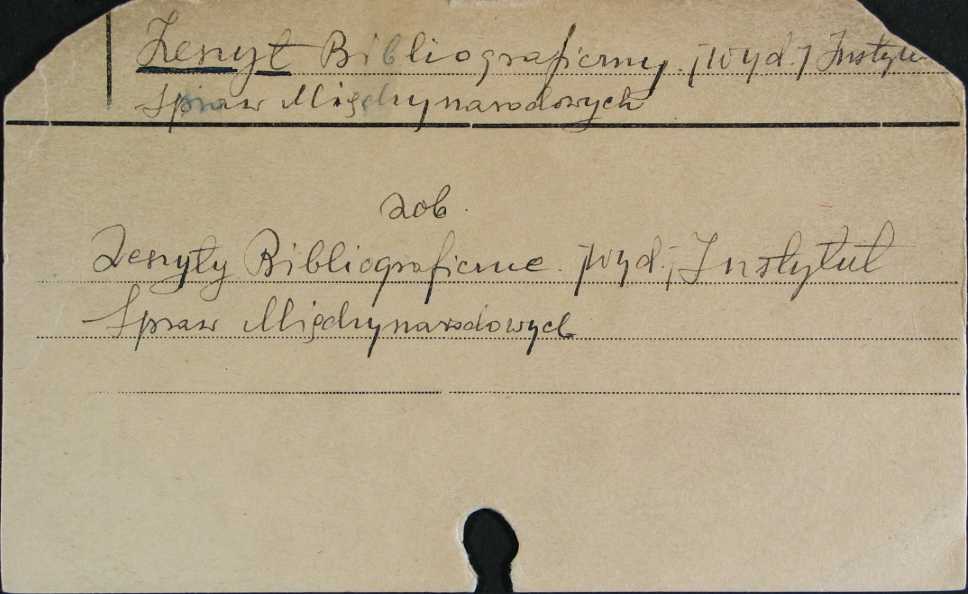 Zeszyt Bibliograficzny. [wyd.] Instytu
Spraw Międzynarodowych
zob.
Zeszyty Bibliograficzne. [wyd.] Instytut
Spraw Międzynarodowych